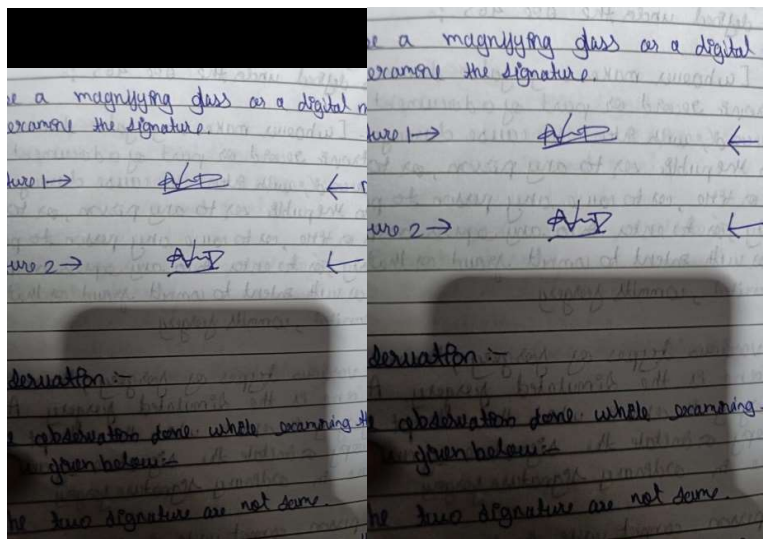 e a magnifying glass as a digital
examine the signature.
ture 1→ ←
ture 2→ ←
servation :-
observation done while examining the
given below:-
he two signature are not same.
e a magnifying glass as a digital
examine the signature.
ture 1→ ←
ture 2→ ←
servation :-
observation done while examining
given below:-
he two signature are not same.